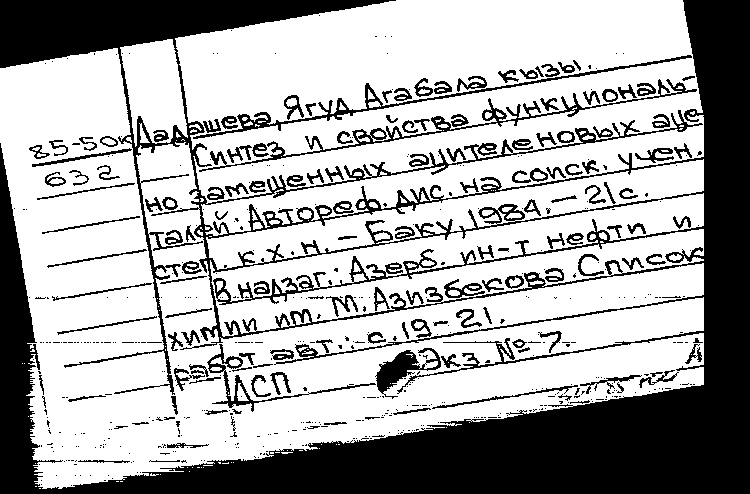 Дадашева, Ягуд Агабала кызы.
85-50к
632
Синтез и свойства функциональ-
но замещенных ацителеновых аце
талей: Автореф. дис. на соиск. учен.
степ. к.х.н. – Баку, 1984. – 21с.
В надзаг.: Азерб. ин-т нефти и
химии им. М. Азизбекова. Список
работ авт.: с.19-21.
ДСП. Экз. № 7.
А